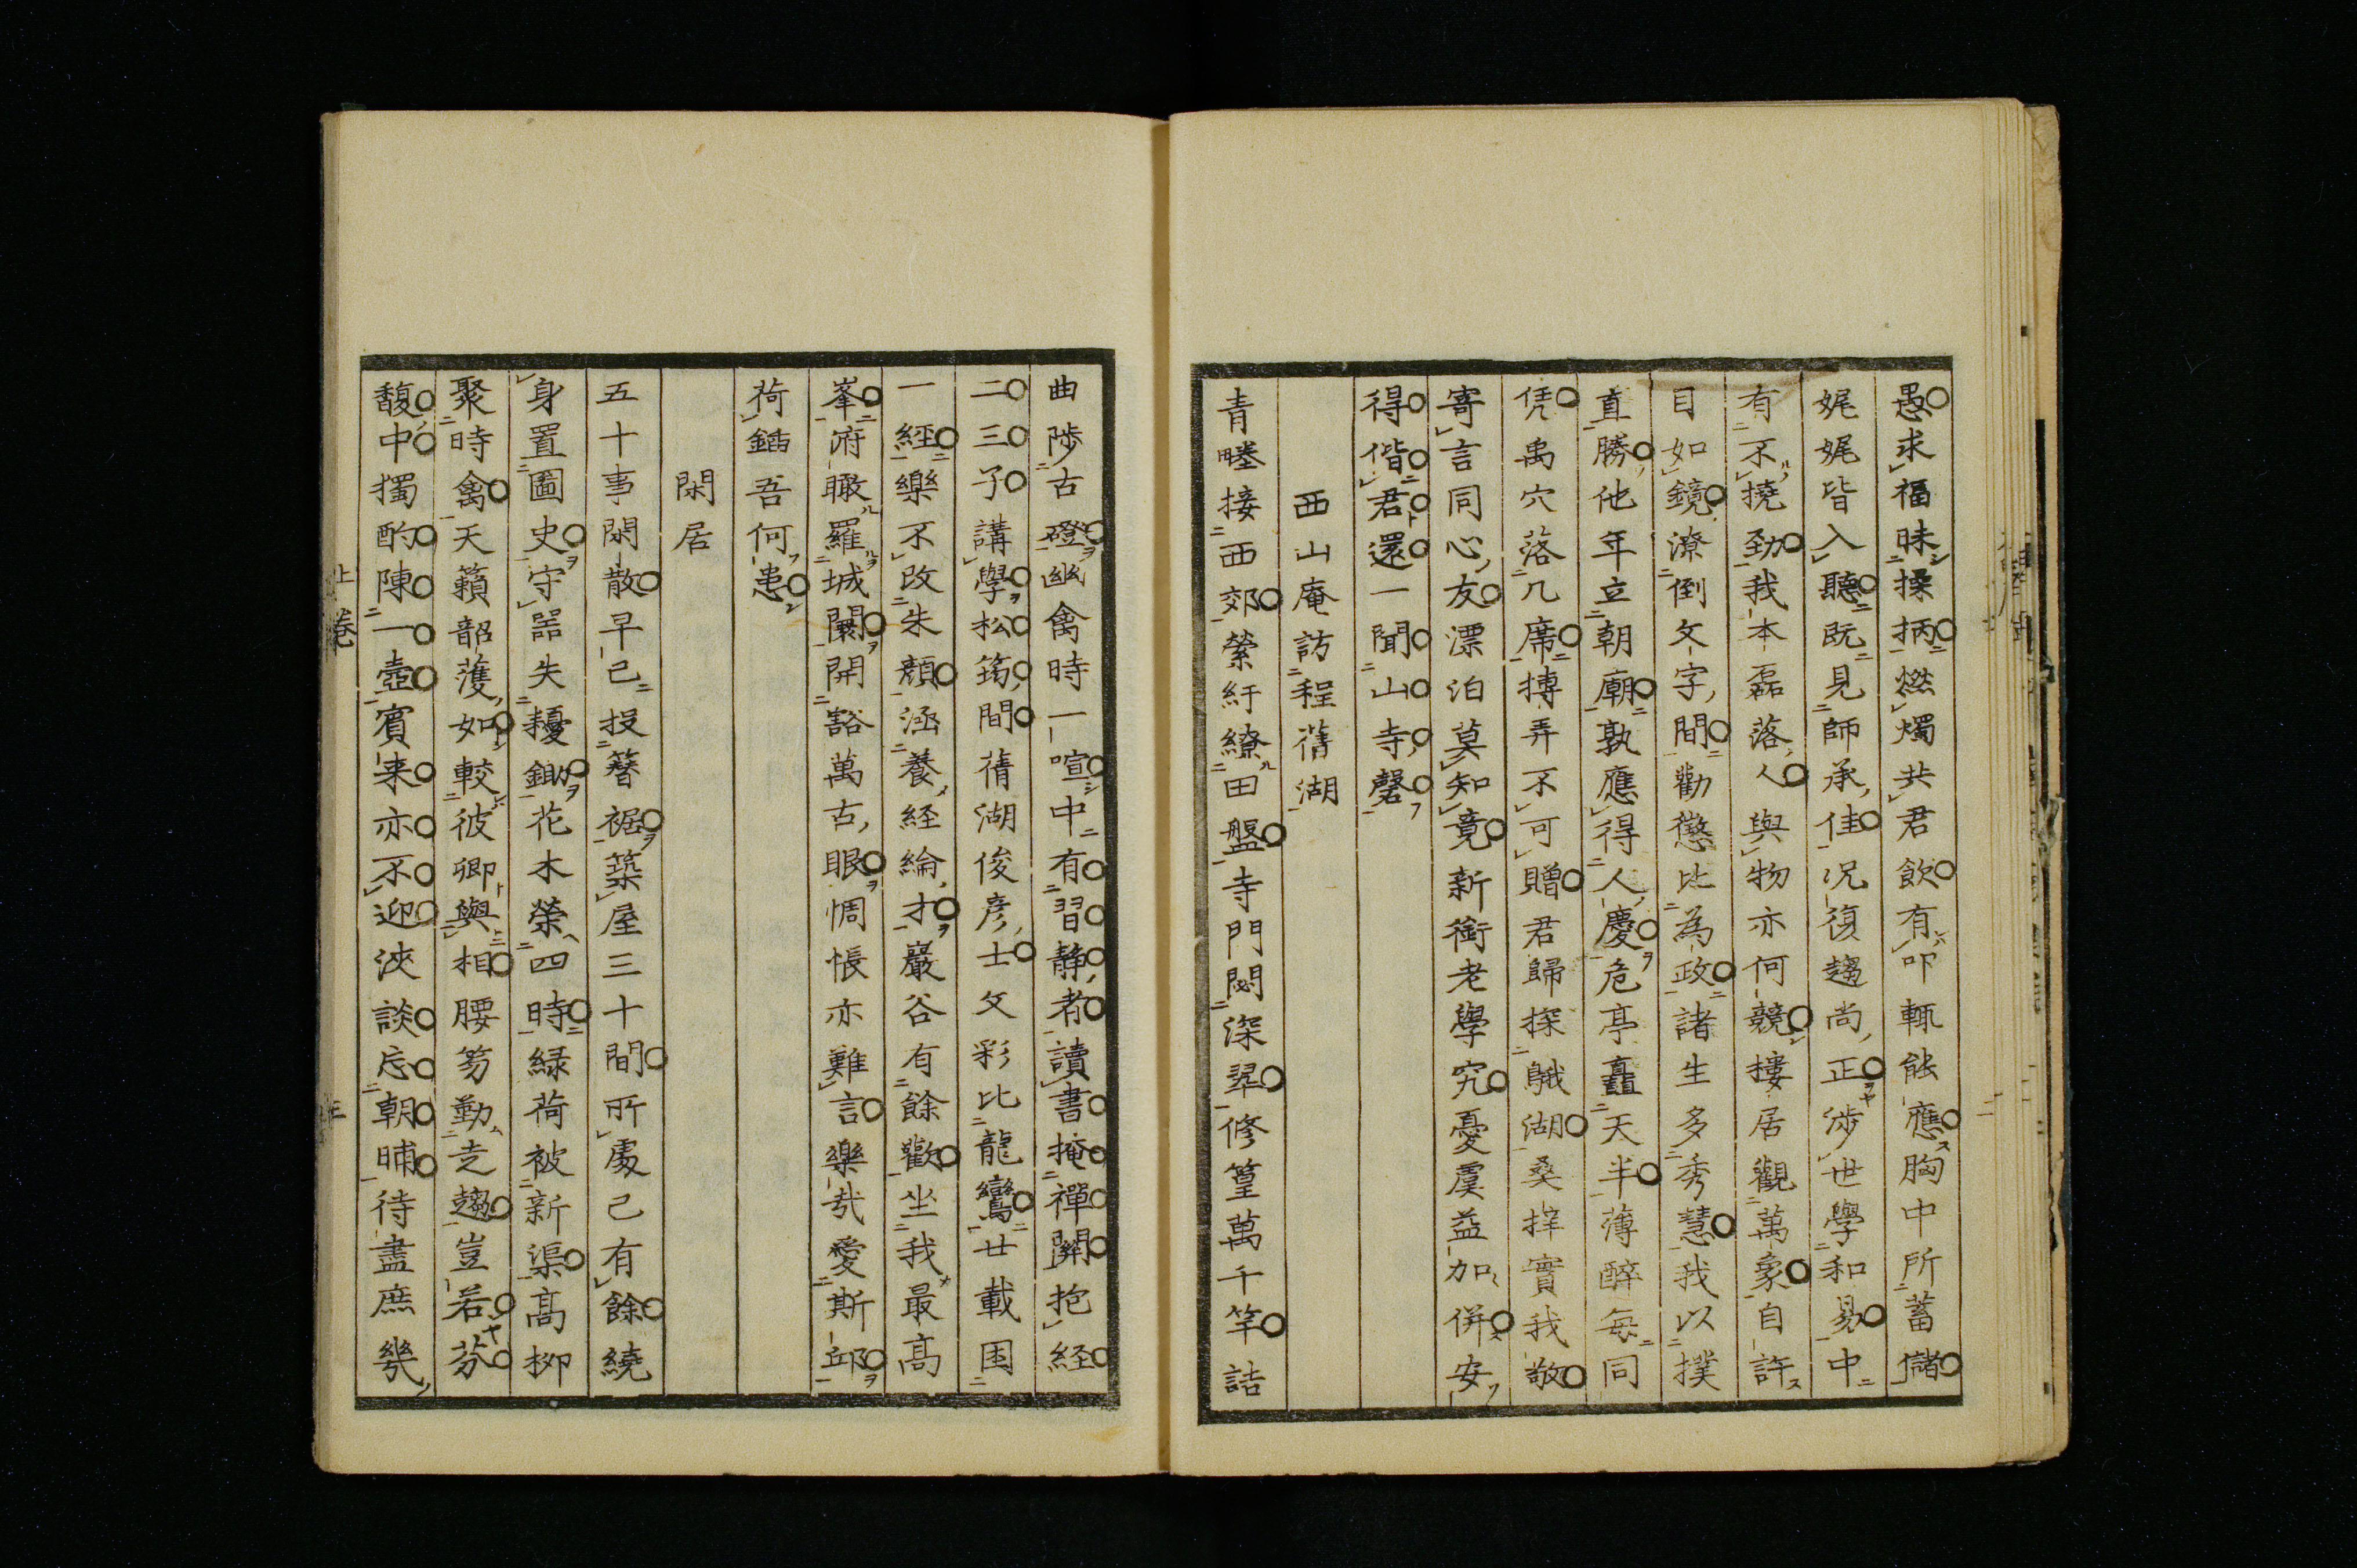 愚求福昧操柄燃燭共君飲有叩輙能應胸中所蓄儲
娓娓皆入聽既見師承佳况復趨尚正渉世學和易中
有不撓勁我本磊落人與物亦何競摟居觀萬象自許
目如鏡潦倒文字間勸懲比為政諸生多秀慧我以撲
直勝他年立朝廟孰應得人慶危亭矗天半薄醉每同
凭禹穴落几席摶弄不可贈君歸探鵝湖桑擇實我敬
寄言同心友漂泊莫知竟新銜老學究憂虞益加併安
得偕君還一聞山寺磬
西山庵訪程蒨湖
青畻接西郊縈紆繚田盤寺門閟深翠修篁萬千竿詰
曲陟古磴幽禽時一喧中有習静者讀書掩禪關抱経
二三子講學松筠間蒨湖俊彦士文彩比龍鸞廿載困
一經樂不改朱顔涵養経綸才巖谷有餘歡坐我最高
峯府瞰羅城闤開豁萬古眼惆悵亦難言樂哉愛斯邱
荷鍤吾何患
閑居
五十事閑散早已投簪裾築屋三十間所處己有餘繞
身置圖史守噐失耰鋤花木榮四時緑荷被新渠高柳
聚時禽天籟韶頀如較彼卿與相腰笏勤走趨豈若芬
馥中獨酌陳一壺賓来亦不迎浹談忘朝晡待盡庶幾
上巻